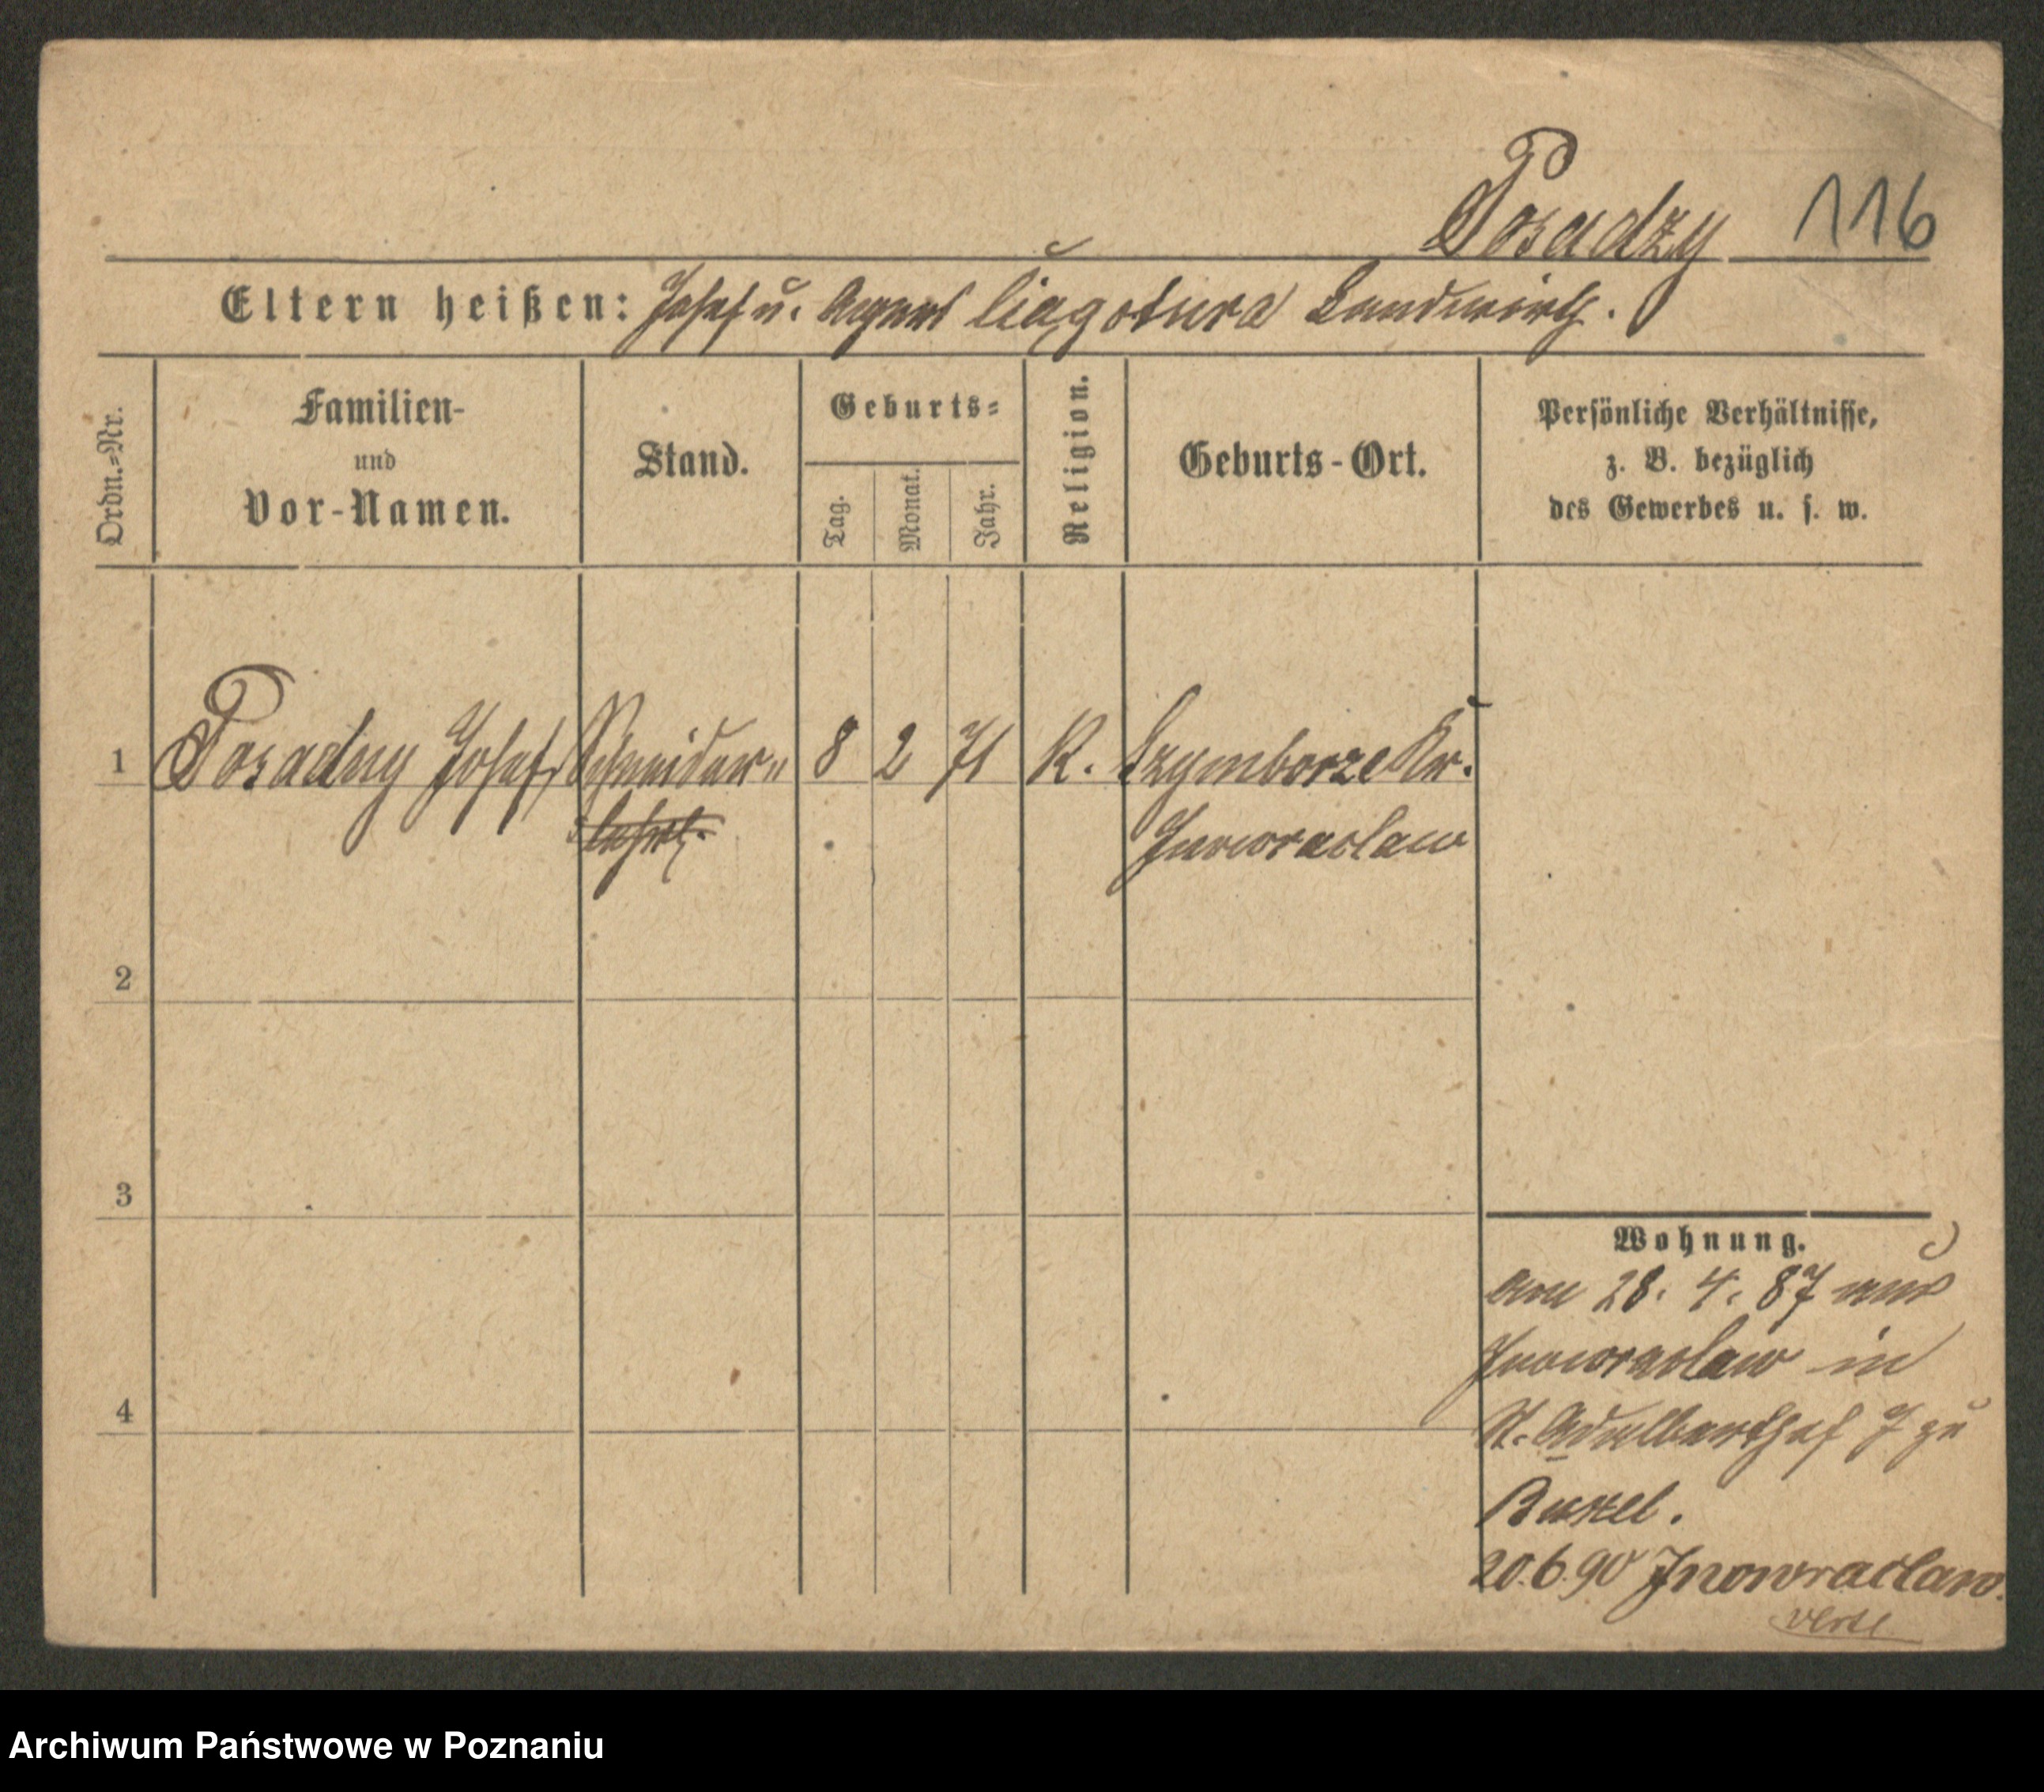 Posadzy 116
Eltern heißen: Josef u. Agnes Landwirth.
Ordn.-Nr.
Familien-
und
Vor-Namen.
Stand.
Geburts=
Tag.
Monat.
Jahr.
Religion.
Geburts-Ort.
Persönliche Verhältnisse,
z. B. bezüglich
des Gewerbes u. s. w.
1 Posadzy Josef Schneider 8 2 71 K. Szymborze Kr.
lehrl. Inowraclaw
2
3
4
Wohnung.
am 28. 4. 87 aus
Inowraclaw in
St. Adalberthof 7 zu
20.6.90 Inowraclaw.
Archiwum Państwowe w Poznaniu